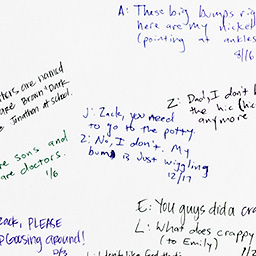 A: These big bumps rig
here are my nickel
(pointing at ankles
8/16
thers are named
are Brown & Dark
Jonathan at school.
J: Zack, you need
to go to the potty.
Z: No, I don't. My
bum is just wiggling
12/17
Z: Dad, I don't
the hic (hic
anymore
sons and
are doctors.
1/6
E: You guys did a cra
L: What does crappy
(to Emily)
Zack, PLEASE
Goosing around!